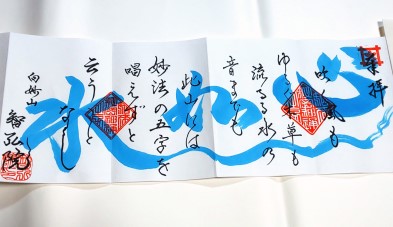 奉拝
心如水
吹く風も
ゆるぐ木草も
流るる水の
音までも
此山には
妙法の五字を
唱えずと
云うこと
なし
智弘院